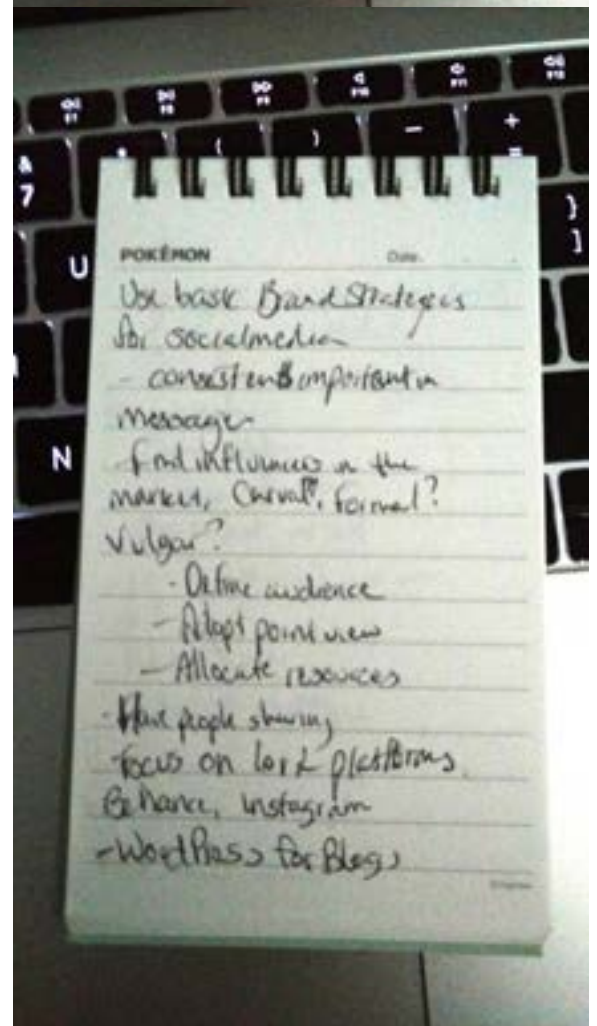 POKÉMON Date
Use basic Brand Strategies
for social media
- consistent important in
message
- find influencers in the
market, Casual?, Formal?
Vulgar?
- Define audience
- Adopt point view
- Allocate resources
- Have people sharing
- Focus on 1 or 2 platforms.
Behance, Instagram
- WordPress for Blogs
& 7
U
N
( ) _ + =
} ]
F7 F8 F9 F10 F11 F12